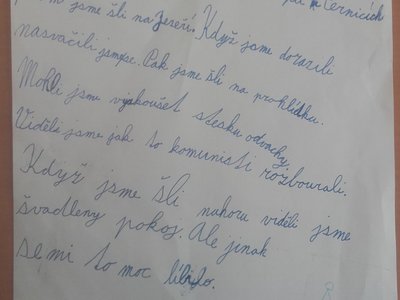 jsme šli na Jezeří. Když jsme dorazili
nasvačili jsme se. Pak jsme šli na prohlídku.
Mohli jsme vyskoušet stesku odvochy.
Viděli jsme jak to komunisti rozbourali.
Když jsme šli nahoru viděli jsme
švadleny pokoj. Ale jinak
se mi to moc líbilo.